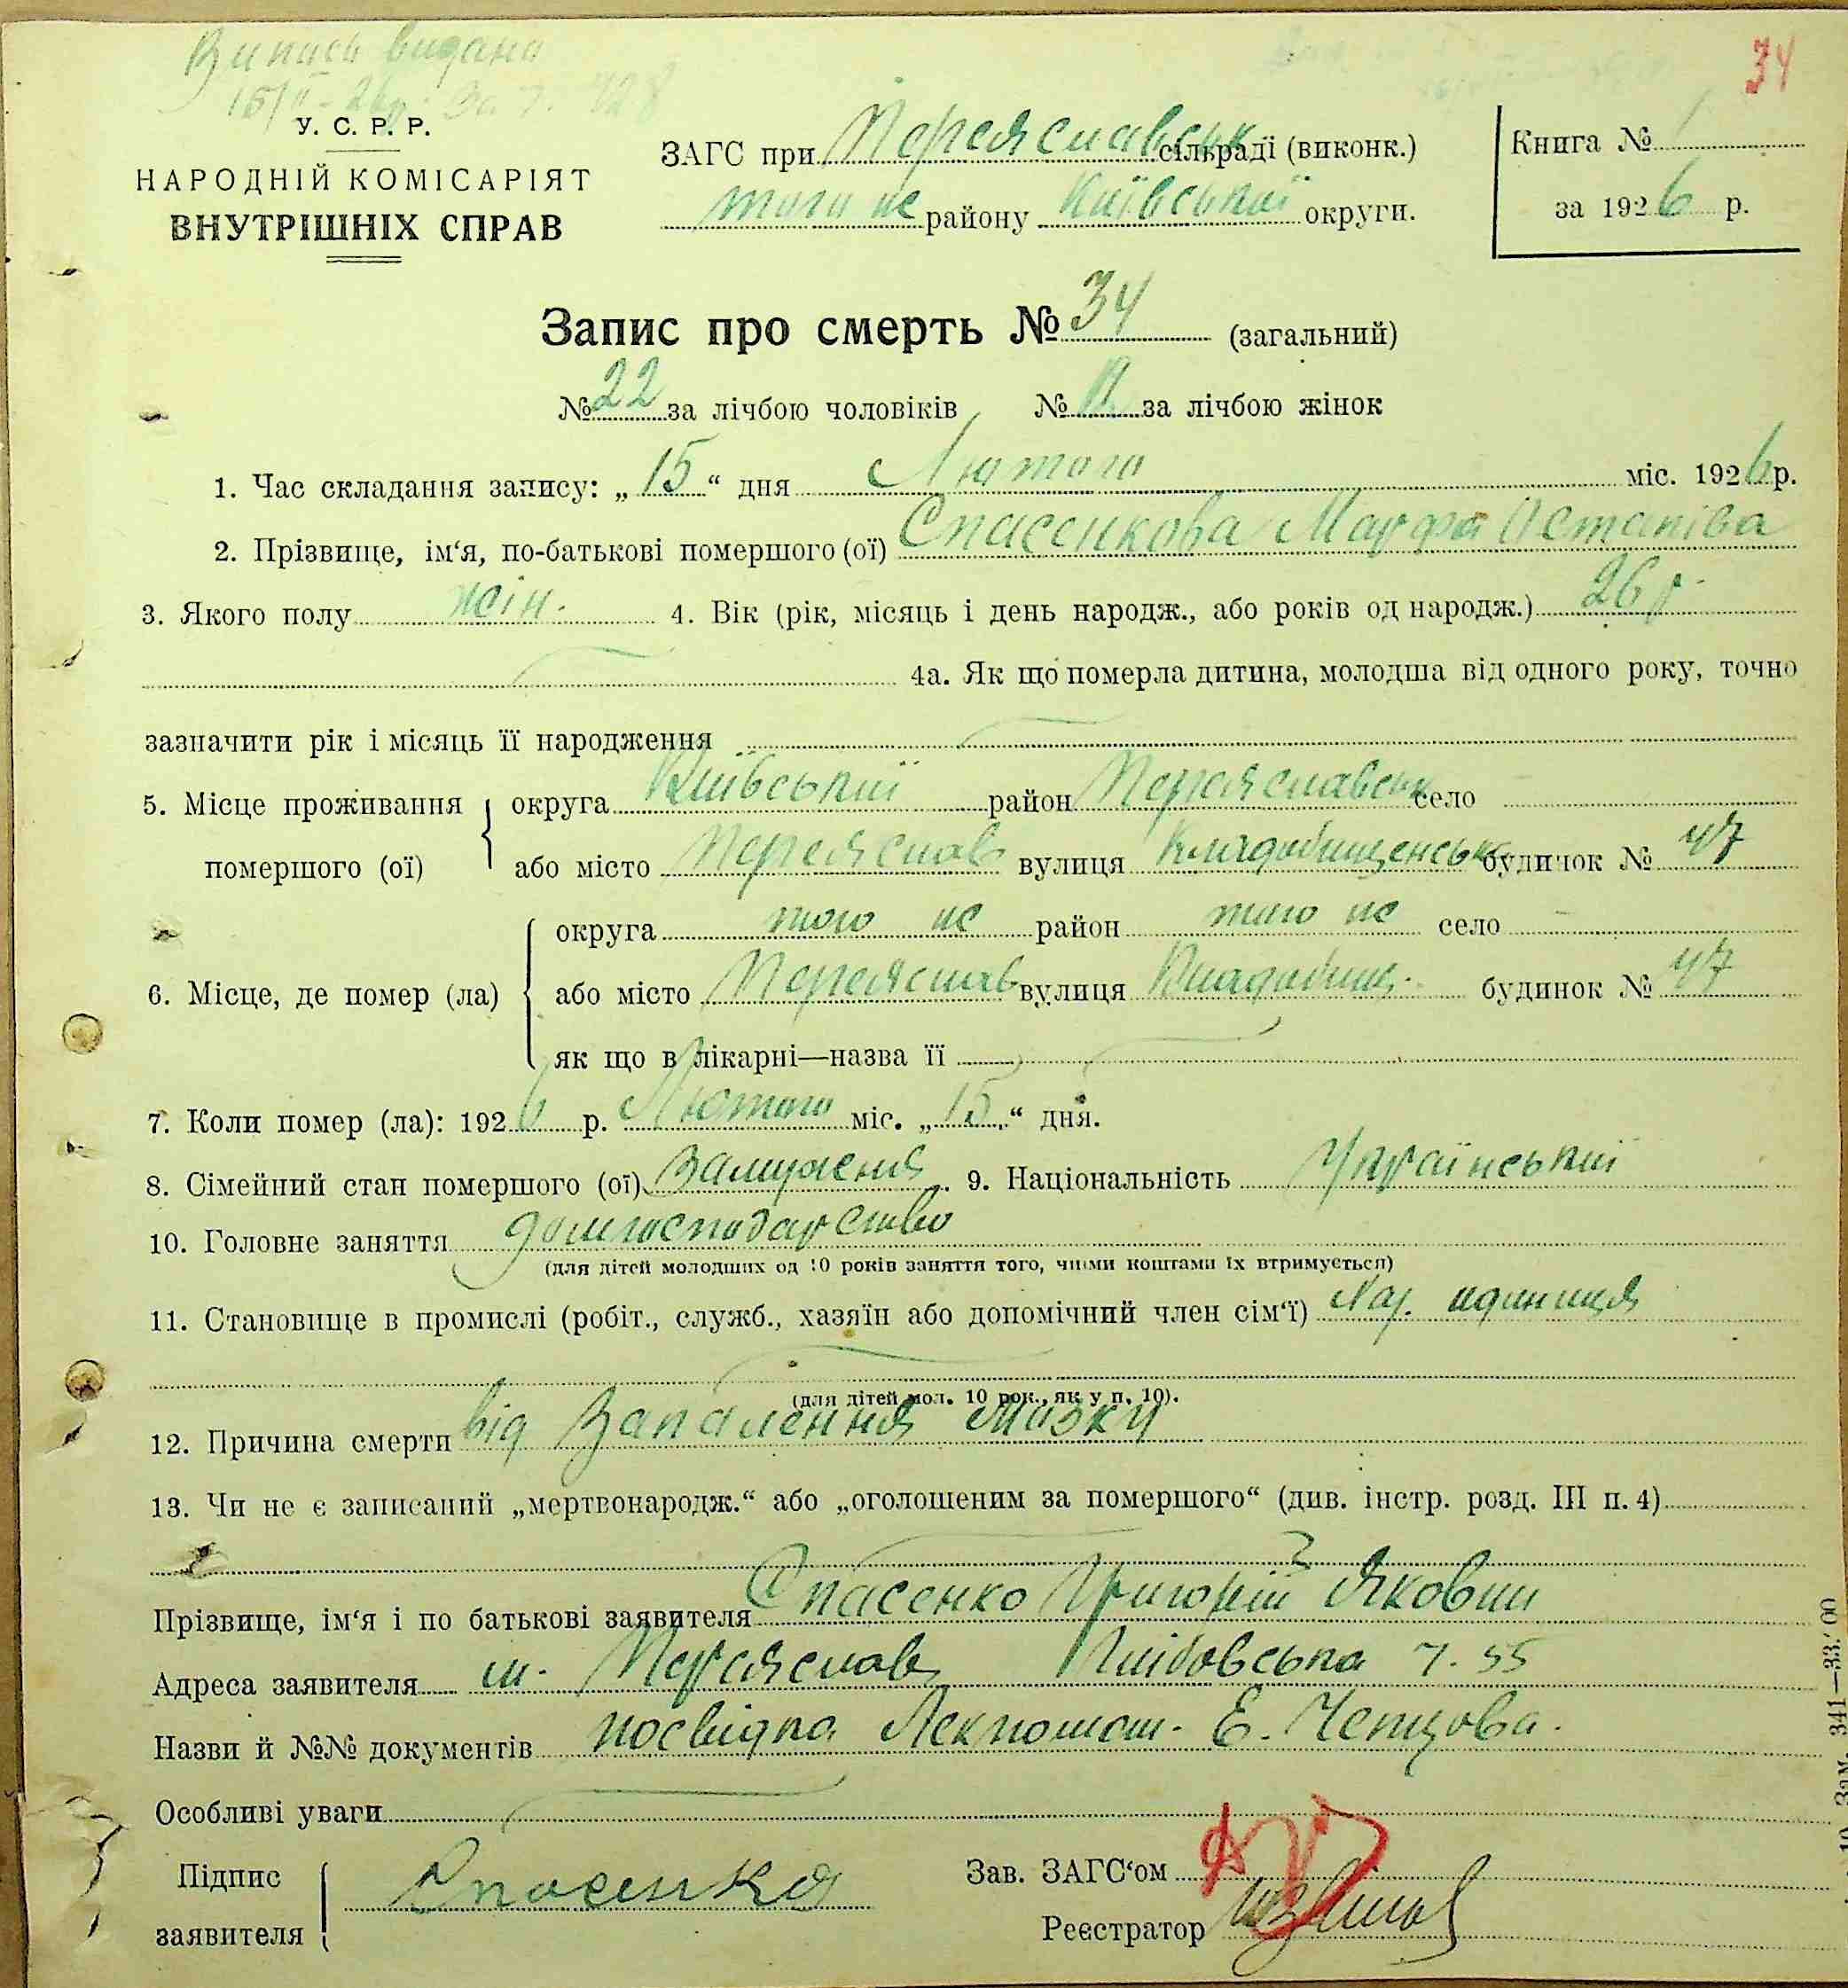 Випись видано
15/II-26р. За № 428
34
У. С. Р. Р.
НАРОДНІЙ КОМІСАРІЯТ
ВНУТРІШНІХ СПРАВ
ЗАГС при Переяславськ сільраді (виконк.)
того же району Київської округи.
Книга № 1
за 1926 р.
Запис про смерть № 34 (загальний)
№ 22 за лічбою чоловіків № 12 за лічбою жінок
1. Час складання запису: „15“ дня Лютого міс. 1926 р.
2. Прізвище, ім‘я, по-батькові помершого (ої) Спасенкова Марфа Остапіва
3. Якого полу жін. 4. Вік (рік, місяць і день народж., або років од народж.) 26 р.
4а. Як що померла дитина, молодша від одного року, точно
зазначити рік і місяць її народження
5. Місце проживання помершого (ої)
округа Київської район Переяславськ село
або місто Переяслав вулиця Кладовищенськ будинок № 47
6. Місце, де помер (ла)
округа того же район того же село
або місто Переяслав вулиця Кладовищ. будинок № 47
як що в лікарні—назва її
7. Коли помер (ла): 1926 р. Лютого міс. „15“ дня.
8. Сімейний стан помершого (ої) Замужня 9. Національність Української
10. Головне заняття домгосподарство
(для дітей молодших од 10 років заняття того, чиїми коштами їх втримується)
11. Становище в промислі (робіт., служб., хазяїн або допомічний член сім‘ї) одиниця
(для дітей мол. 10 рок., як у п. 10).
12. Причина смерти від Запалення мозку
13. Чи не є записаний „мертвонародж.“ або „оголошеним за помершого“ (див. інстр. розд. III п. 4)
Прізвище, ім‘я і по батькові заявителя Спасенко Григорій Якович
Адреса заявителя м. Переяслав ч. 55
Назви й №№ документів посвідка Лекпома Е. Чепцова.
Особливі уваги
Підпис заявителя Спасенко
Зав. ЗАГС‘ом
Реєстратор
Зам. 341—33.